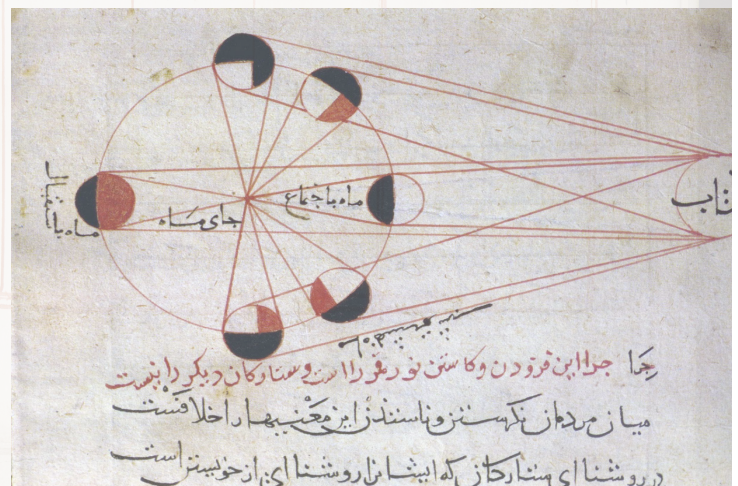 ماه باستقبال
جای ماه
ماه باجتماع
چرا این فزودن وکاستن نور قمر را است وستارکان دیکر را نیست
میان مردمان نکرستن این معنیها را خلافست
در روشنا ای ستارکان که ایشانرا روشنا ای از خویشتن است